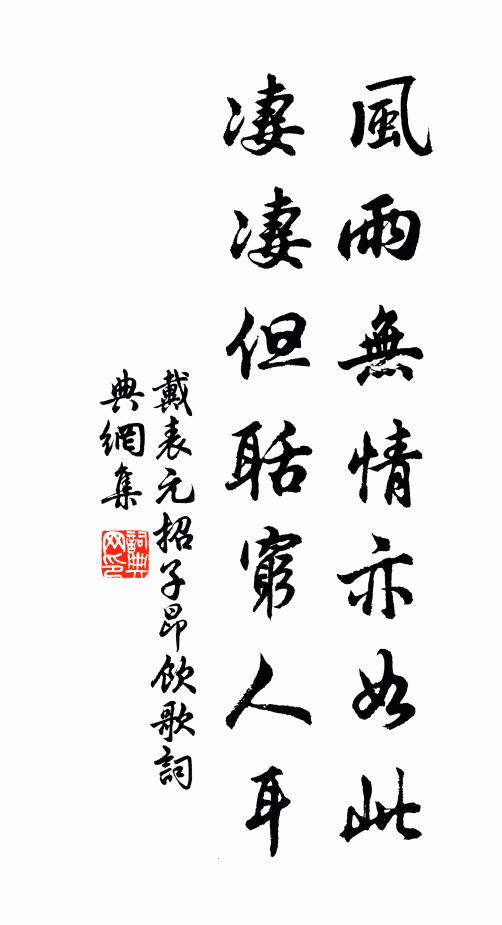 風雨無情亦如此
凄凄但聒窮人耳
戴表元招子昂飲歌詞
典網集
詞典网印